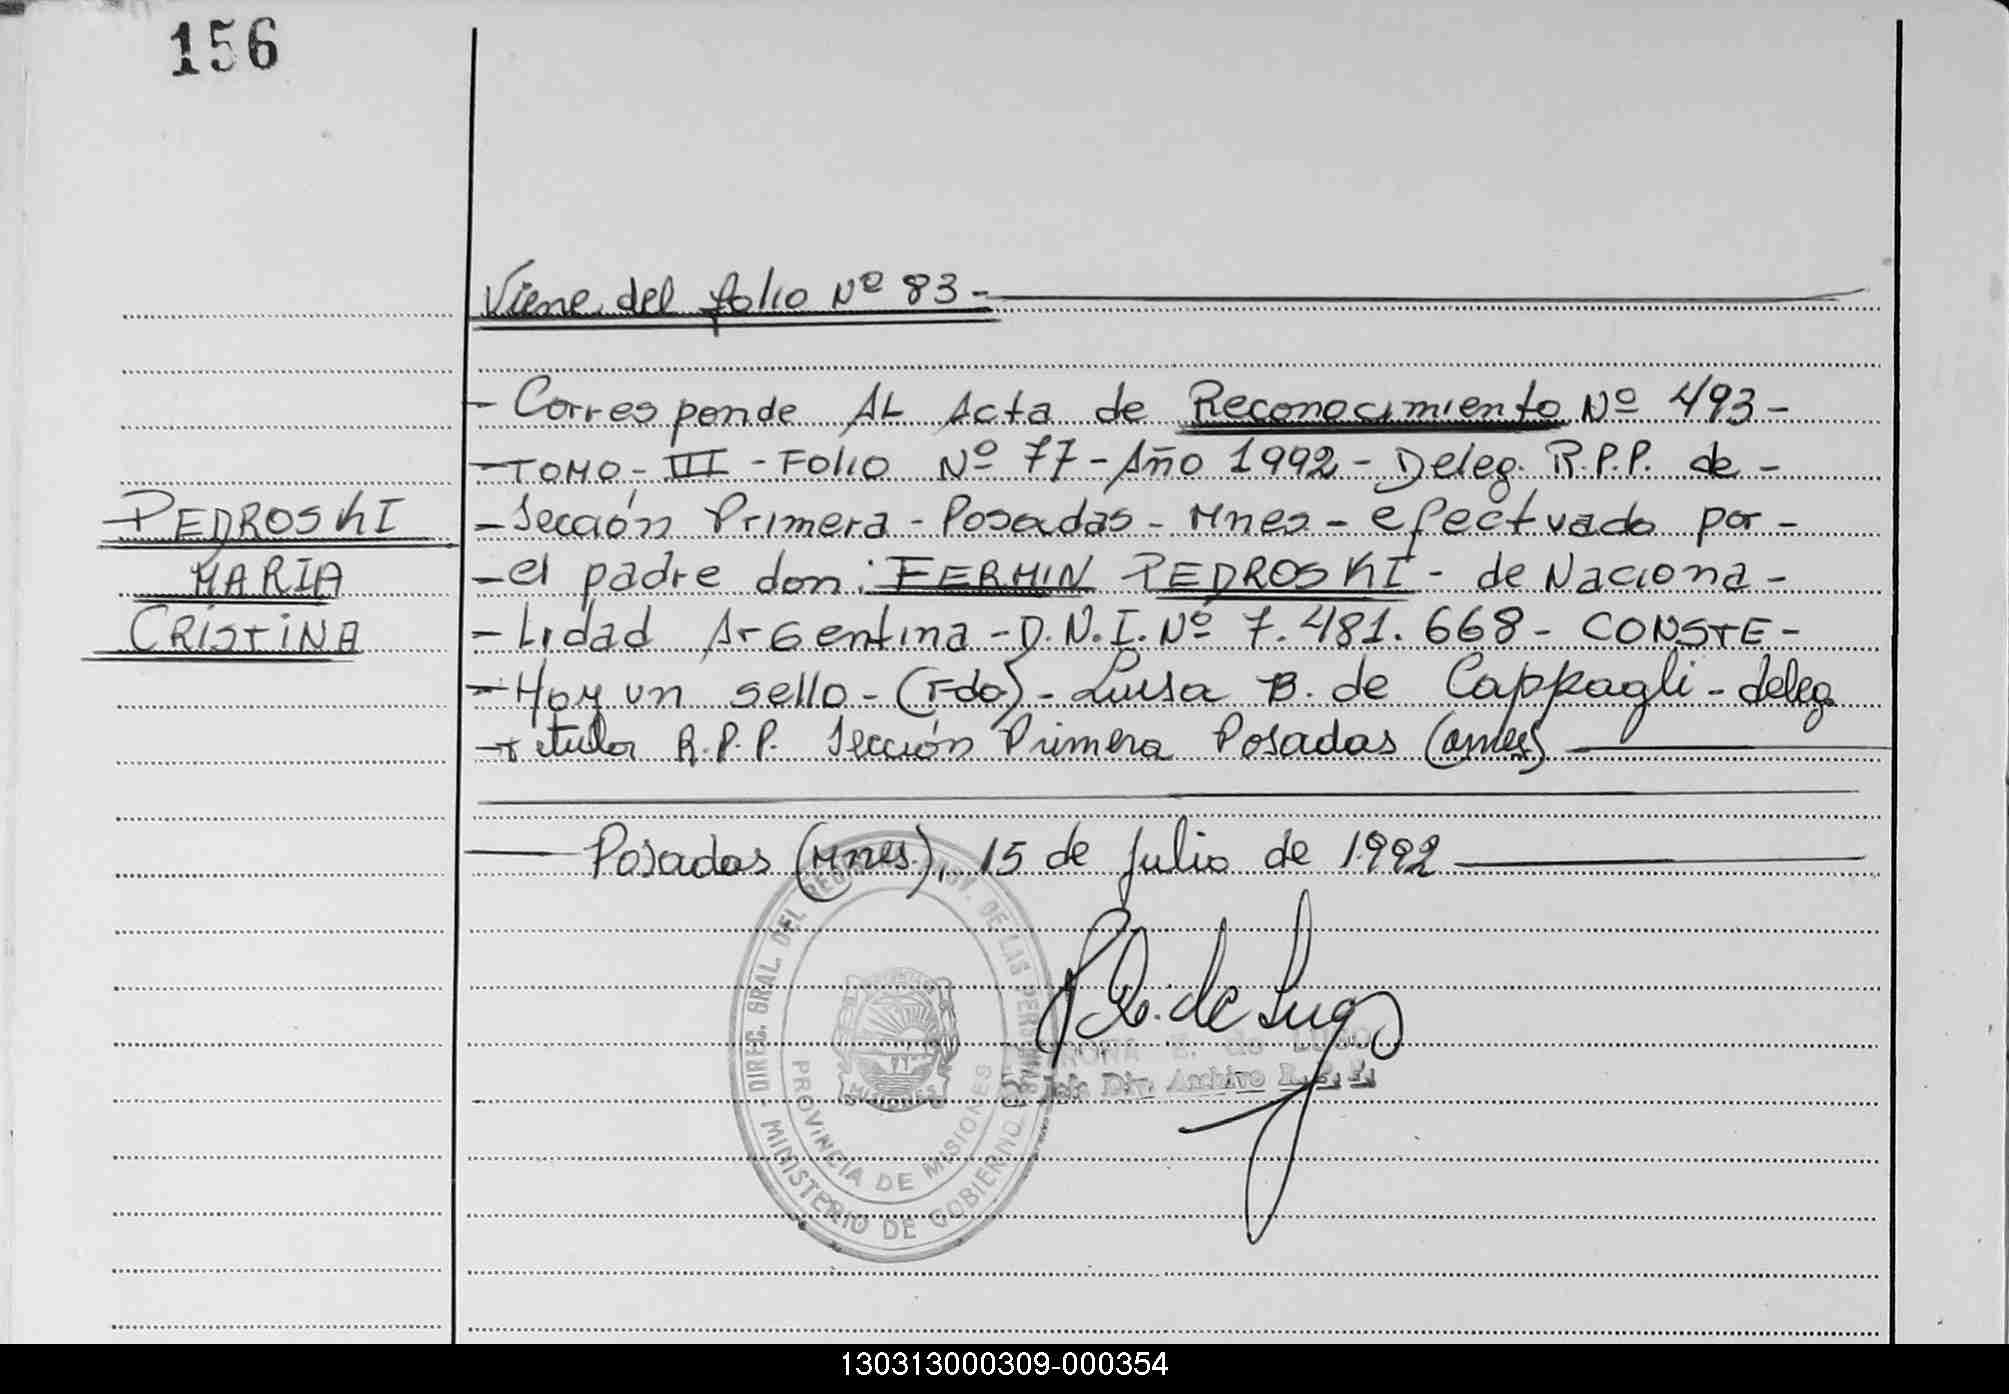 156
Viene del folio Nº 83 -
- Corresponde AL Acta de Reconocimiento Nº 493 -
- TOMO - III - Folio Nº 77 - Año 1992 - Deleg. R.P.P. de -
PEDROSKI
- Sección Primera - Posadas - Mnes. - efectuado por -
MARIA
- el padre don: FERMIN PEDROSKI - de Naciona -
CRISTINA
- Lidad Argentina - D.N.I. Nº 7.481.668 - CONSTE -
- Hoy un sello - (Fdo) - Luisa B. de Cappagli - deleg.
- titular R.P.P. Sección Primera Posadas (mnes)
Posadas (Mnes.), 15 de Julio de 1992
DIREC. GRAL. DEL DE LAS PERSONAS
PROVINCIA DE MISIONES
MINISTERIO DE GOBIERNO
MISIONES
de Lugo
E. de LUGO
Div. Archivo R.P.P.
130313000309-000354